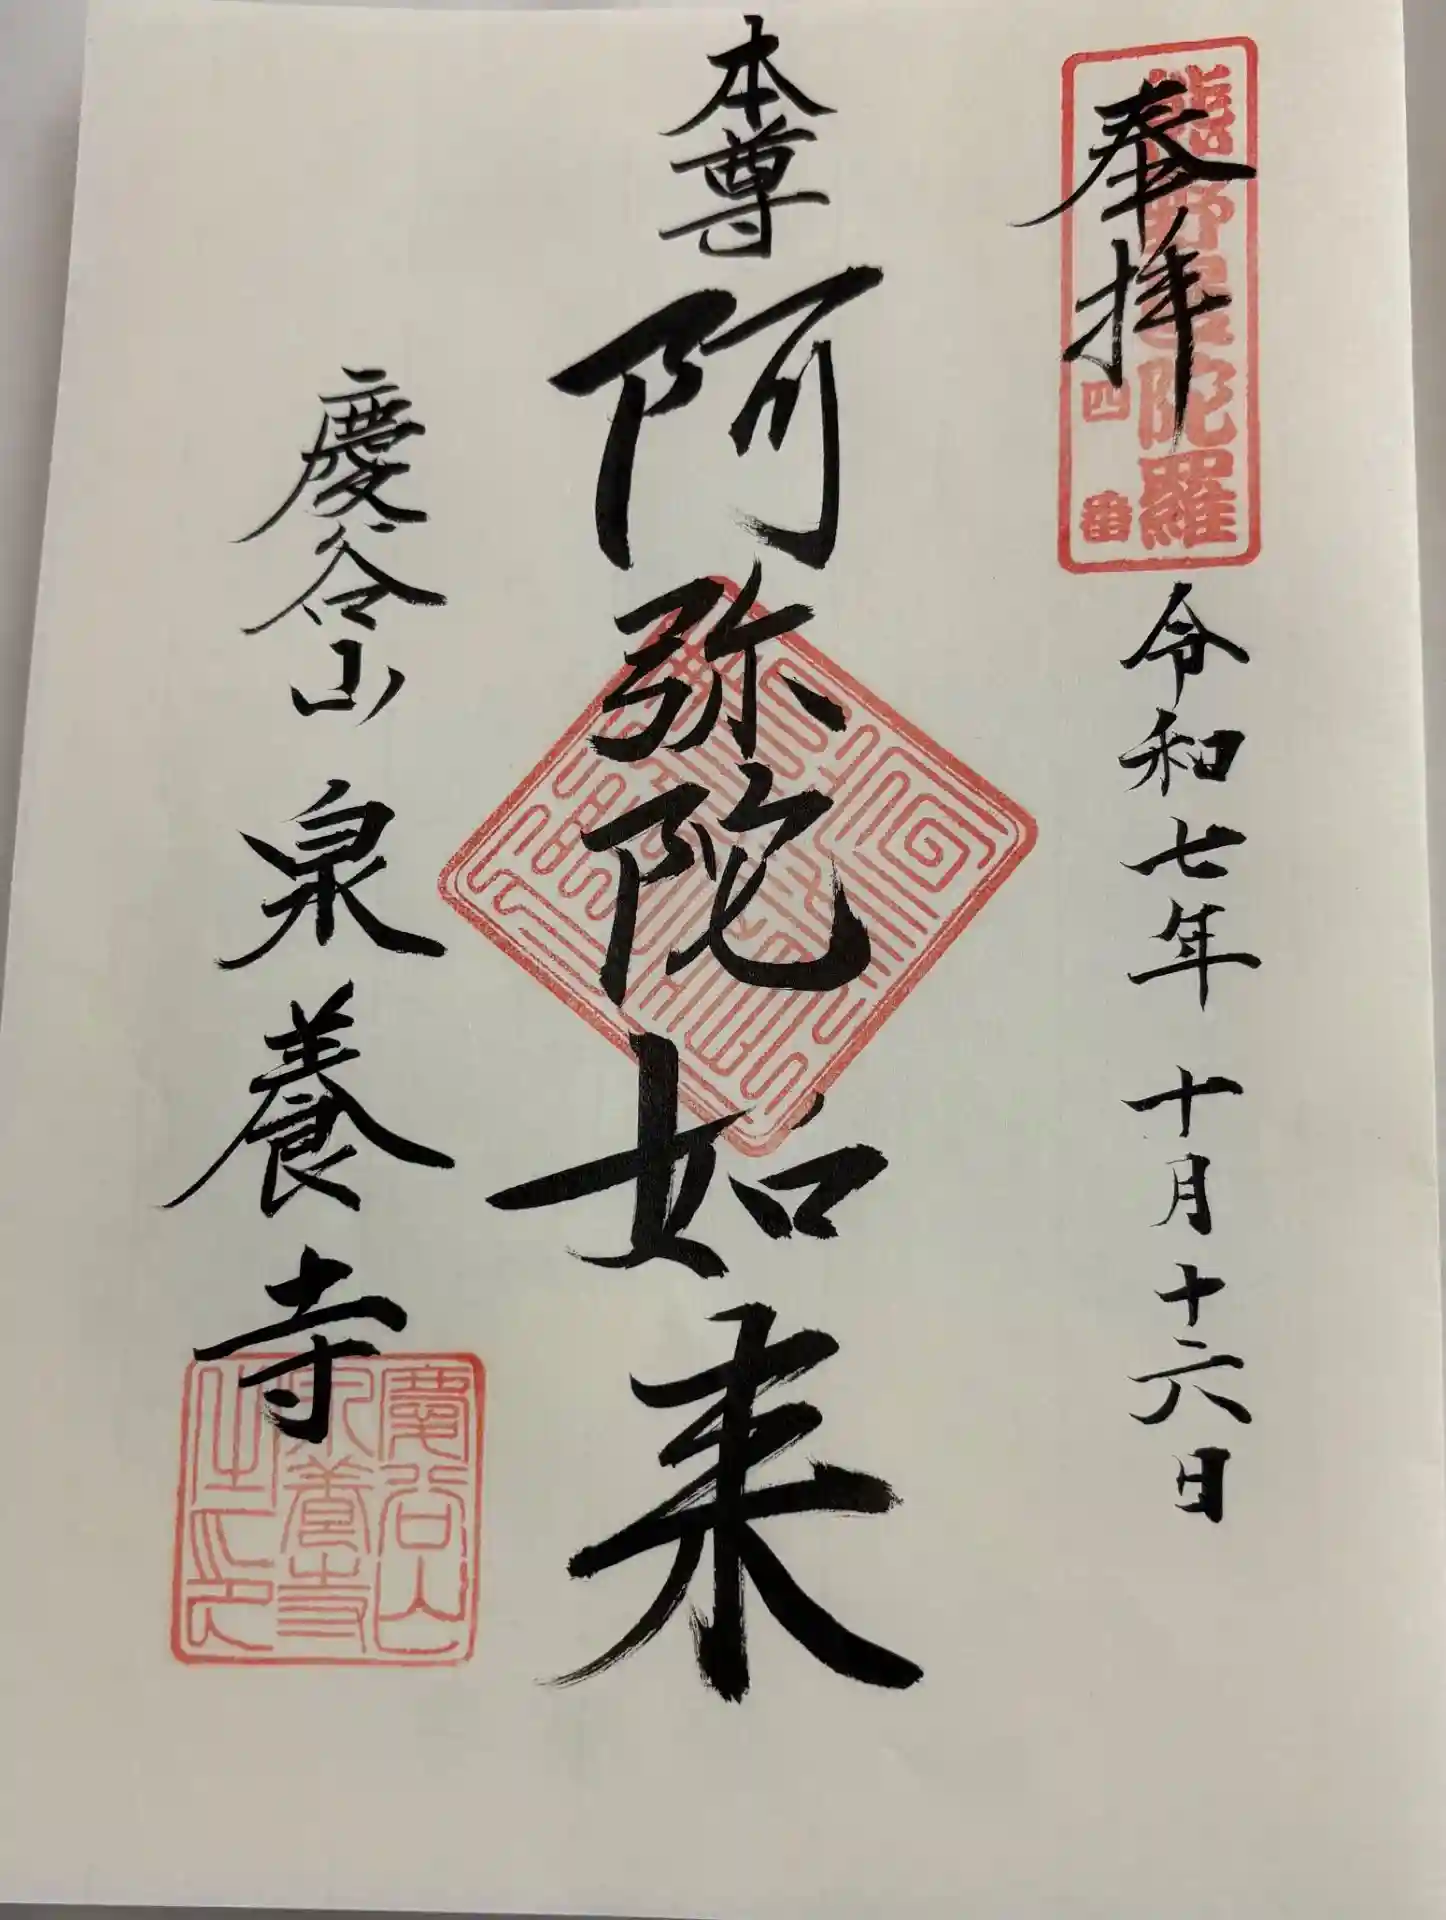 奉拝
熊野曼陀羅
四番
令和七年十月十六日
本尊
阿弥陀如来
慶谷山泉養寺
慶谷山
泉養寺
之印